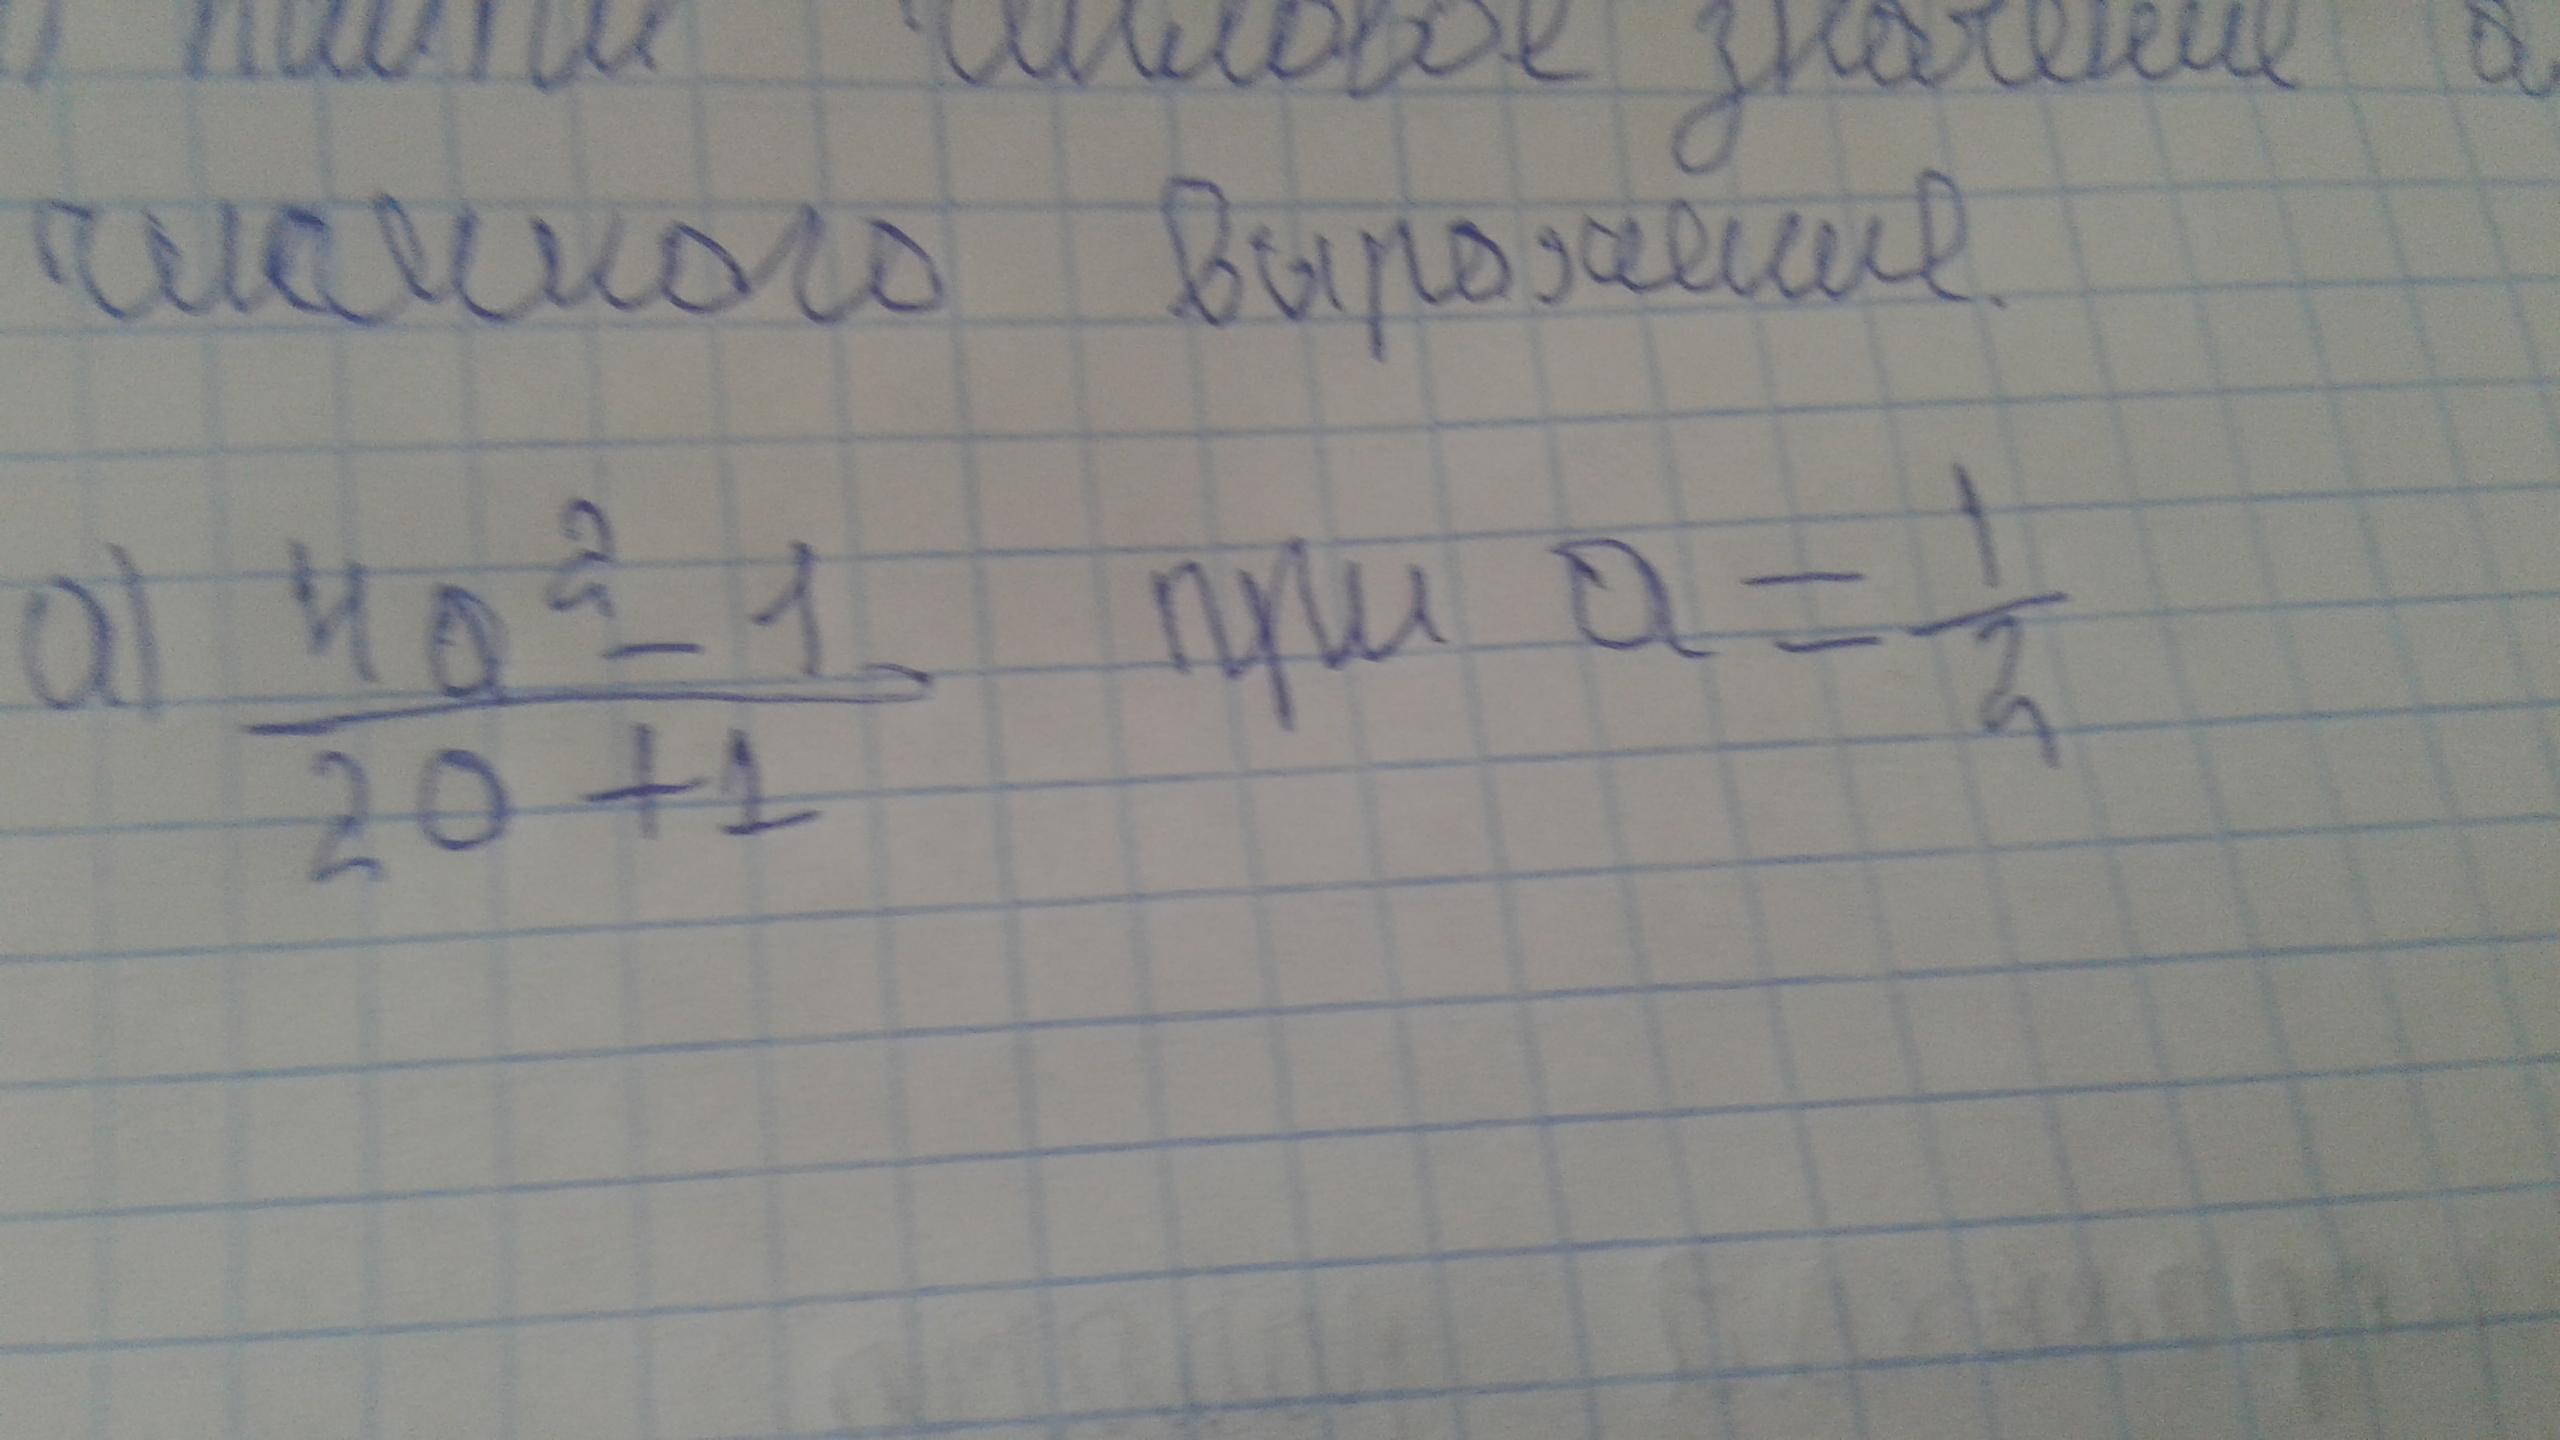 найти числовое значение а
численного выражение.
а) 4a² - 1 / 2a + 1 при a = 1/2